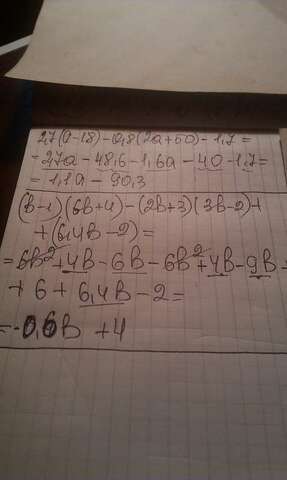 2,7(a-18)-0,8(2a+50)-1,7=
=27a-48,6-1,6a-40-1,7=
=1,1a-90,3
(b-1)(6b+4)-(2b+3)(3b-2)+
+(6,4b-2)=
=6b²+4b-6b-6b²+4b-9b-
+6+6,4b-2=
=-0,6b+4